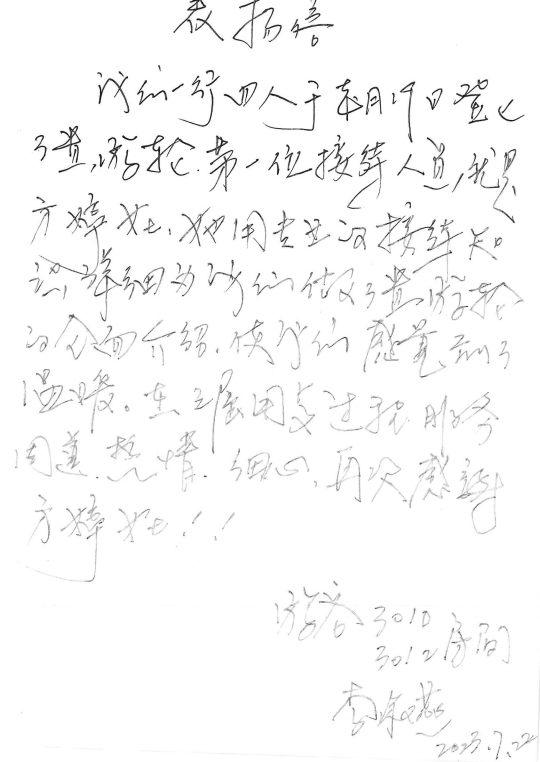 表扬信
我们一行四人于本月19日登上
了贵游轮.第一位接待人员,就是
方婷女士.她用专业的接待知
识,详细为我们做了贵游轮
的全面介绍.使我们感觉到了
温暖。在三层用餐过程服务
周道.热情.细心,再次感谢
方婷女士!!
游客 3010
3012房间
李 燕
2023.7.22